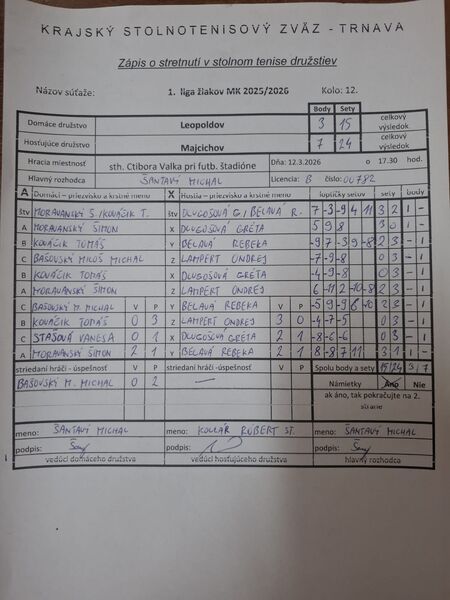 KRAJSKÝ STOLNOTENISOVÝ ZVÄZ - TRNAVA
Zápis o stretnutí v stolnom tenise družstiev
Názov súťaže: 1. liga žiakov MK 2025/2026 Kolo: 12.
Body Sety
Domáce družstvo Leopoldov 3 15 celkový výsledok
Hosťujúce družstvo Majcichov 7 24 celkový výsledok
Hracia miestnosť sth. Ctibora Valka pri futb. štadióne Dňa: 12.3.2026 o 17.30 hod.
Hlavný rozhodca ŠANTAVÝ MICHAL Licencia: B číslo: 00782
A Domáci - priezvisko a krstné meno X Hostia - priezvisko a krstné meno loptičky setov sety body
štv MORAVANSKÝ Š./KOVÁČIK T. štv DLUGOŠOVÁ G/BELAVÁ R. 7 -3 -9 4 11 3 2 1 -
A MORAVANSKÝ ŠIMON X DLUGOŠOVÁ GRÉTA 5 9 8 3 0 1 -
B KOVÁČIK TOMÁŠ Y BELAVÁ REBEKA -9 7 -3 9 -8 2 3 - 1
C BAŠOVSKÝ MILOŠ MICHAL Z LAMPERT ONDREJ -7 -9 -8 0 3 - 1
B KOVÁČIK TOMÁŠ X DLUGOŠOVÁ GRÉTA -4 -9 -8 0 3 - 1
A MORAVANSKÝ ŠIMON Z LAMPERT ONDREJ 6 -11 2 -10 -8 2 3 - 1
C BAŠOVSKÝ M. MICHAL V P Y BELAVÁ REBEKA V P -5 9 -9 6 -10 2 3 - 1
B KOVÁČIK TOMÁŠ 0 3 Z LAMPERT ONDREJ 3 0 -4 -7 -5 0 3 - 1
C STAŠOVÁ VANESA 0 1 X DLUGOŠOVÁ GRÉTA 2 1 -6 -8 -2 0 3 - 1
A MORAVANSKÝ ŠIMON 2 1 Y BELAVÁ REBEKA 2 1 8 -8 7 11 3 1 1 -
striedaní hráči - úspešnosť V P striedaní hráči - úspešnosť V P Spolu body a sety 15/24 3/7
BAŠOVSKÝ M. MICHAL 0 2 — Námietky Áno Nie
ak áno, tak pokračujte na 2. strane
meno: ŠANTAVÝ MICHAL meno: KOLLÁR ROBERT ST. meno: ŠANTAVÝ MICHAL
podpis: podpis: podpis:
vedúci domáceho družstva vedúci hosťujúceho družstva hlavný rozhodca